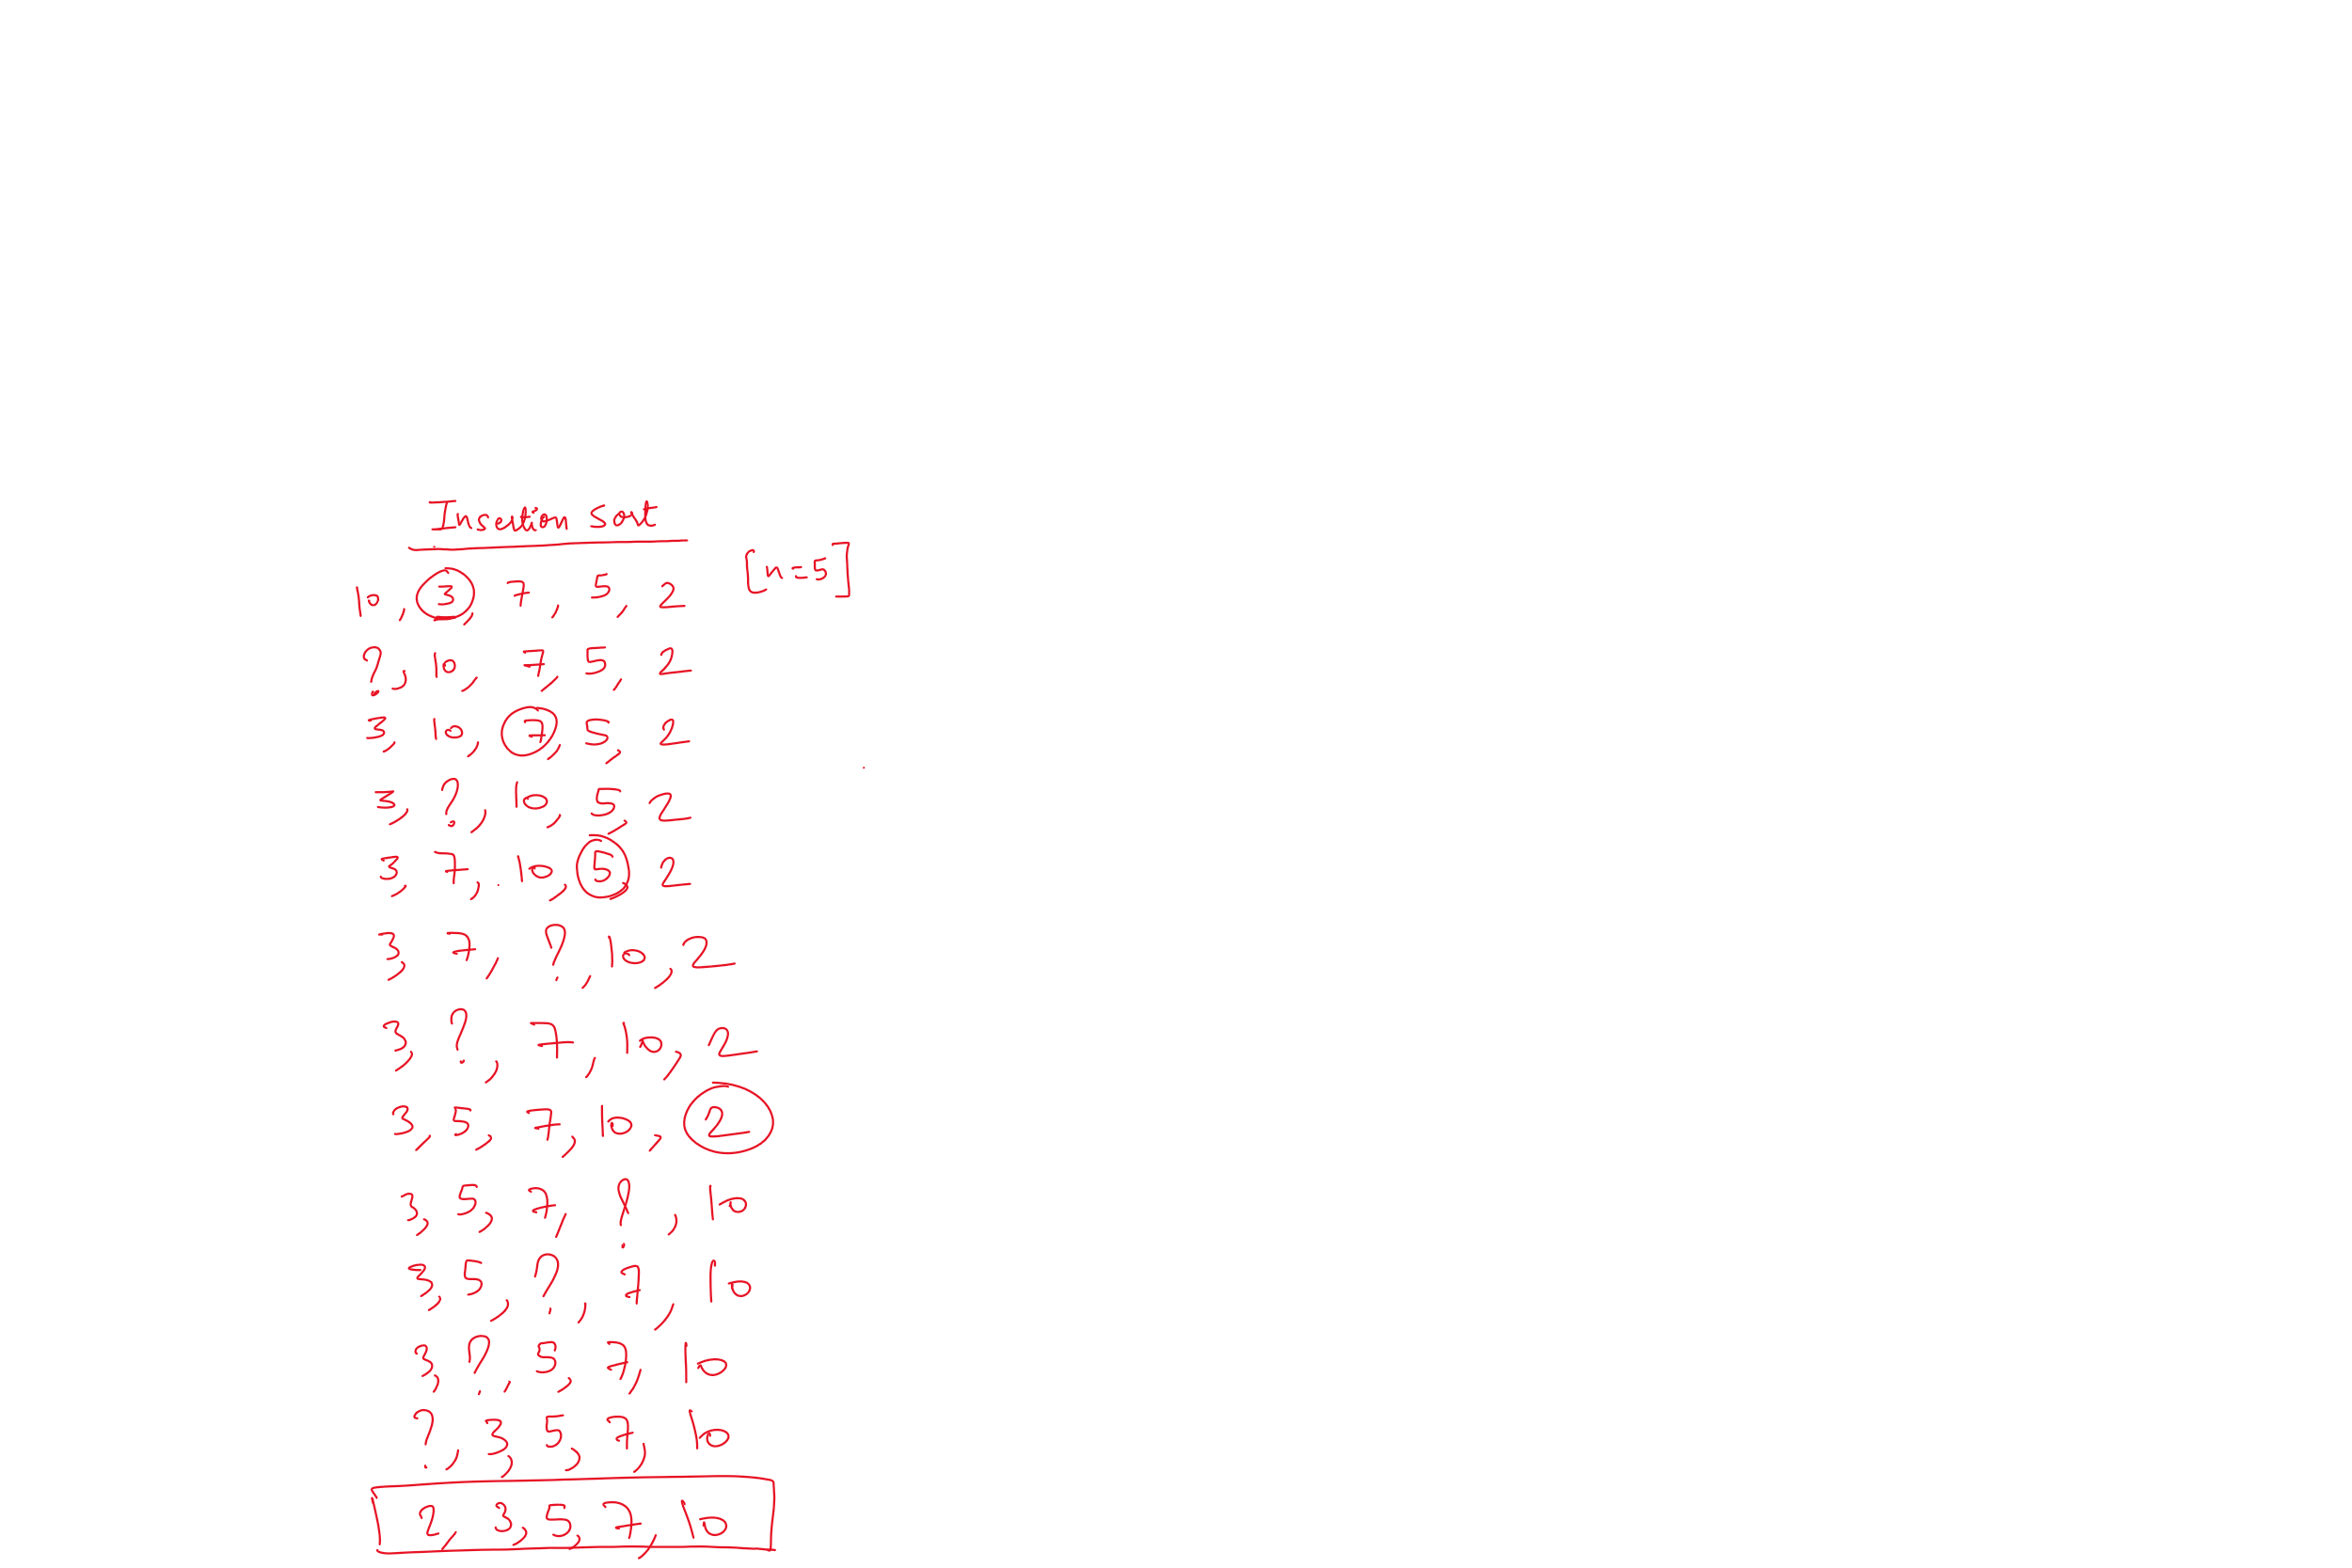 Insertion sort
[n=5]
10, 3, 7, 5, 2
?, 10, 7, 5, 2
3, 10, 7, 5, 2
3, ?, 10, 5, 2
3, 7, 10, 5, 2
3, 7, ?, 10, 2
3, ?, 7, 10, 2
3, 5, 7, 10, 2
3, 5, 7, ?, 10
3, 5, ?, 7, 10
3, ?, 5, 7, 10
?, 3, 5, 7, 10
2, 3, 5, 7, 10